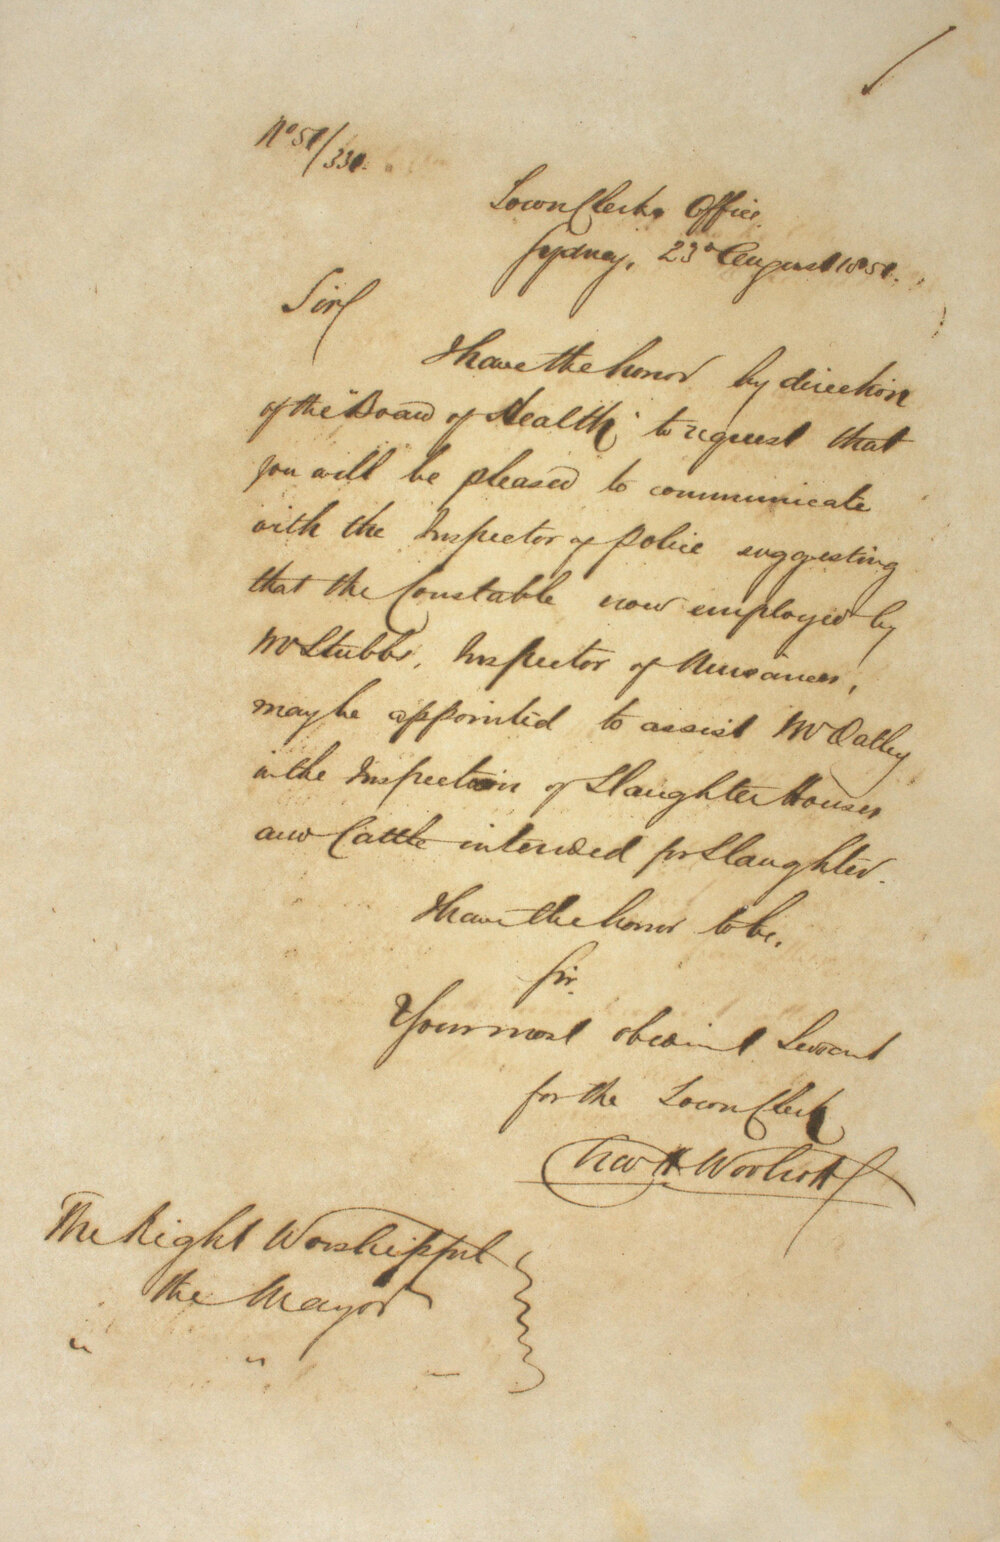 No 51/331.
Town Clerks Office.
Sydney, 23d August 1851.
Sir
I have the honor by direction
of the "Board of Health" to request that
you will be pleased to communicate
with the Inspector of Police suggesting
that the Constable now employed by
Mr Stubbs, Inspector of Nuisances,
may be appointed to assist Mr Oatley
in the Inspection of Slaughter Houses
and Cattle intended for Slaughter.
I have the honor to be,
Sir.
Your most obedient Servant
for the Town Clerk
Chas H. Woolcott
The Right Worshipful
the Mayor
" " –